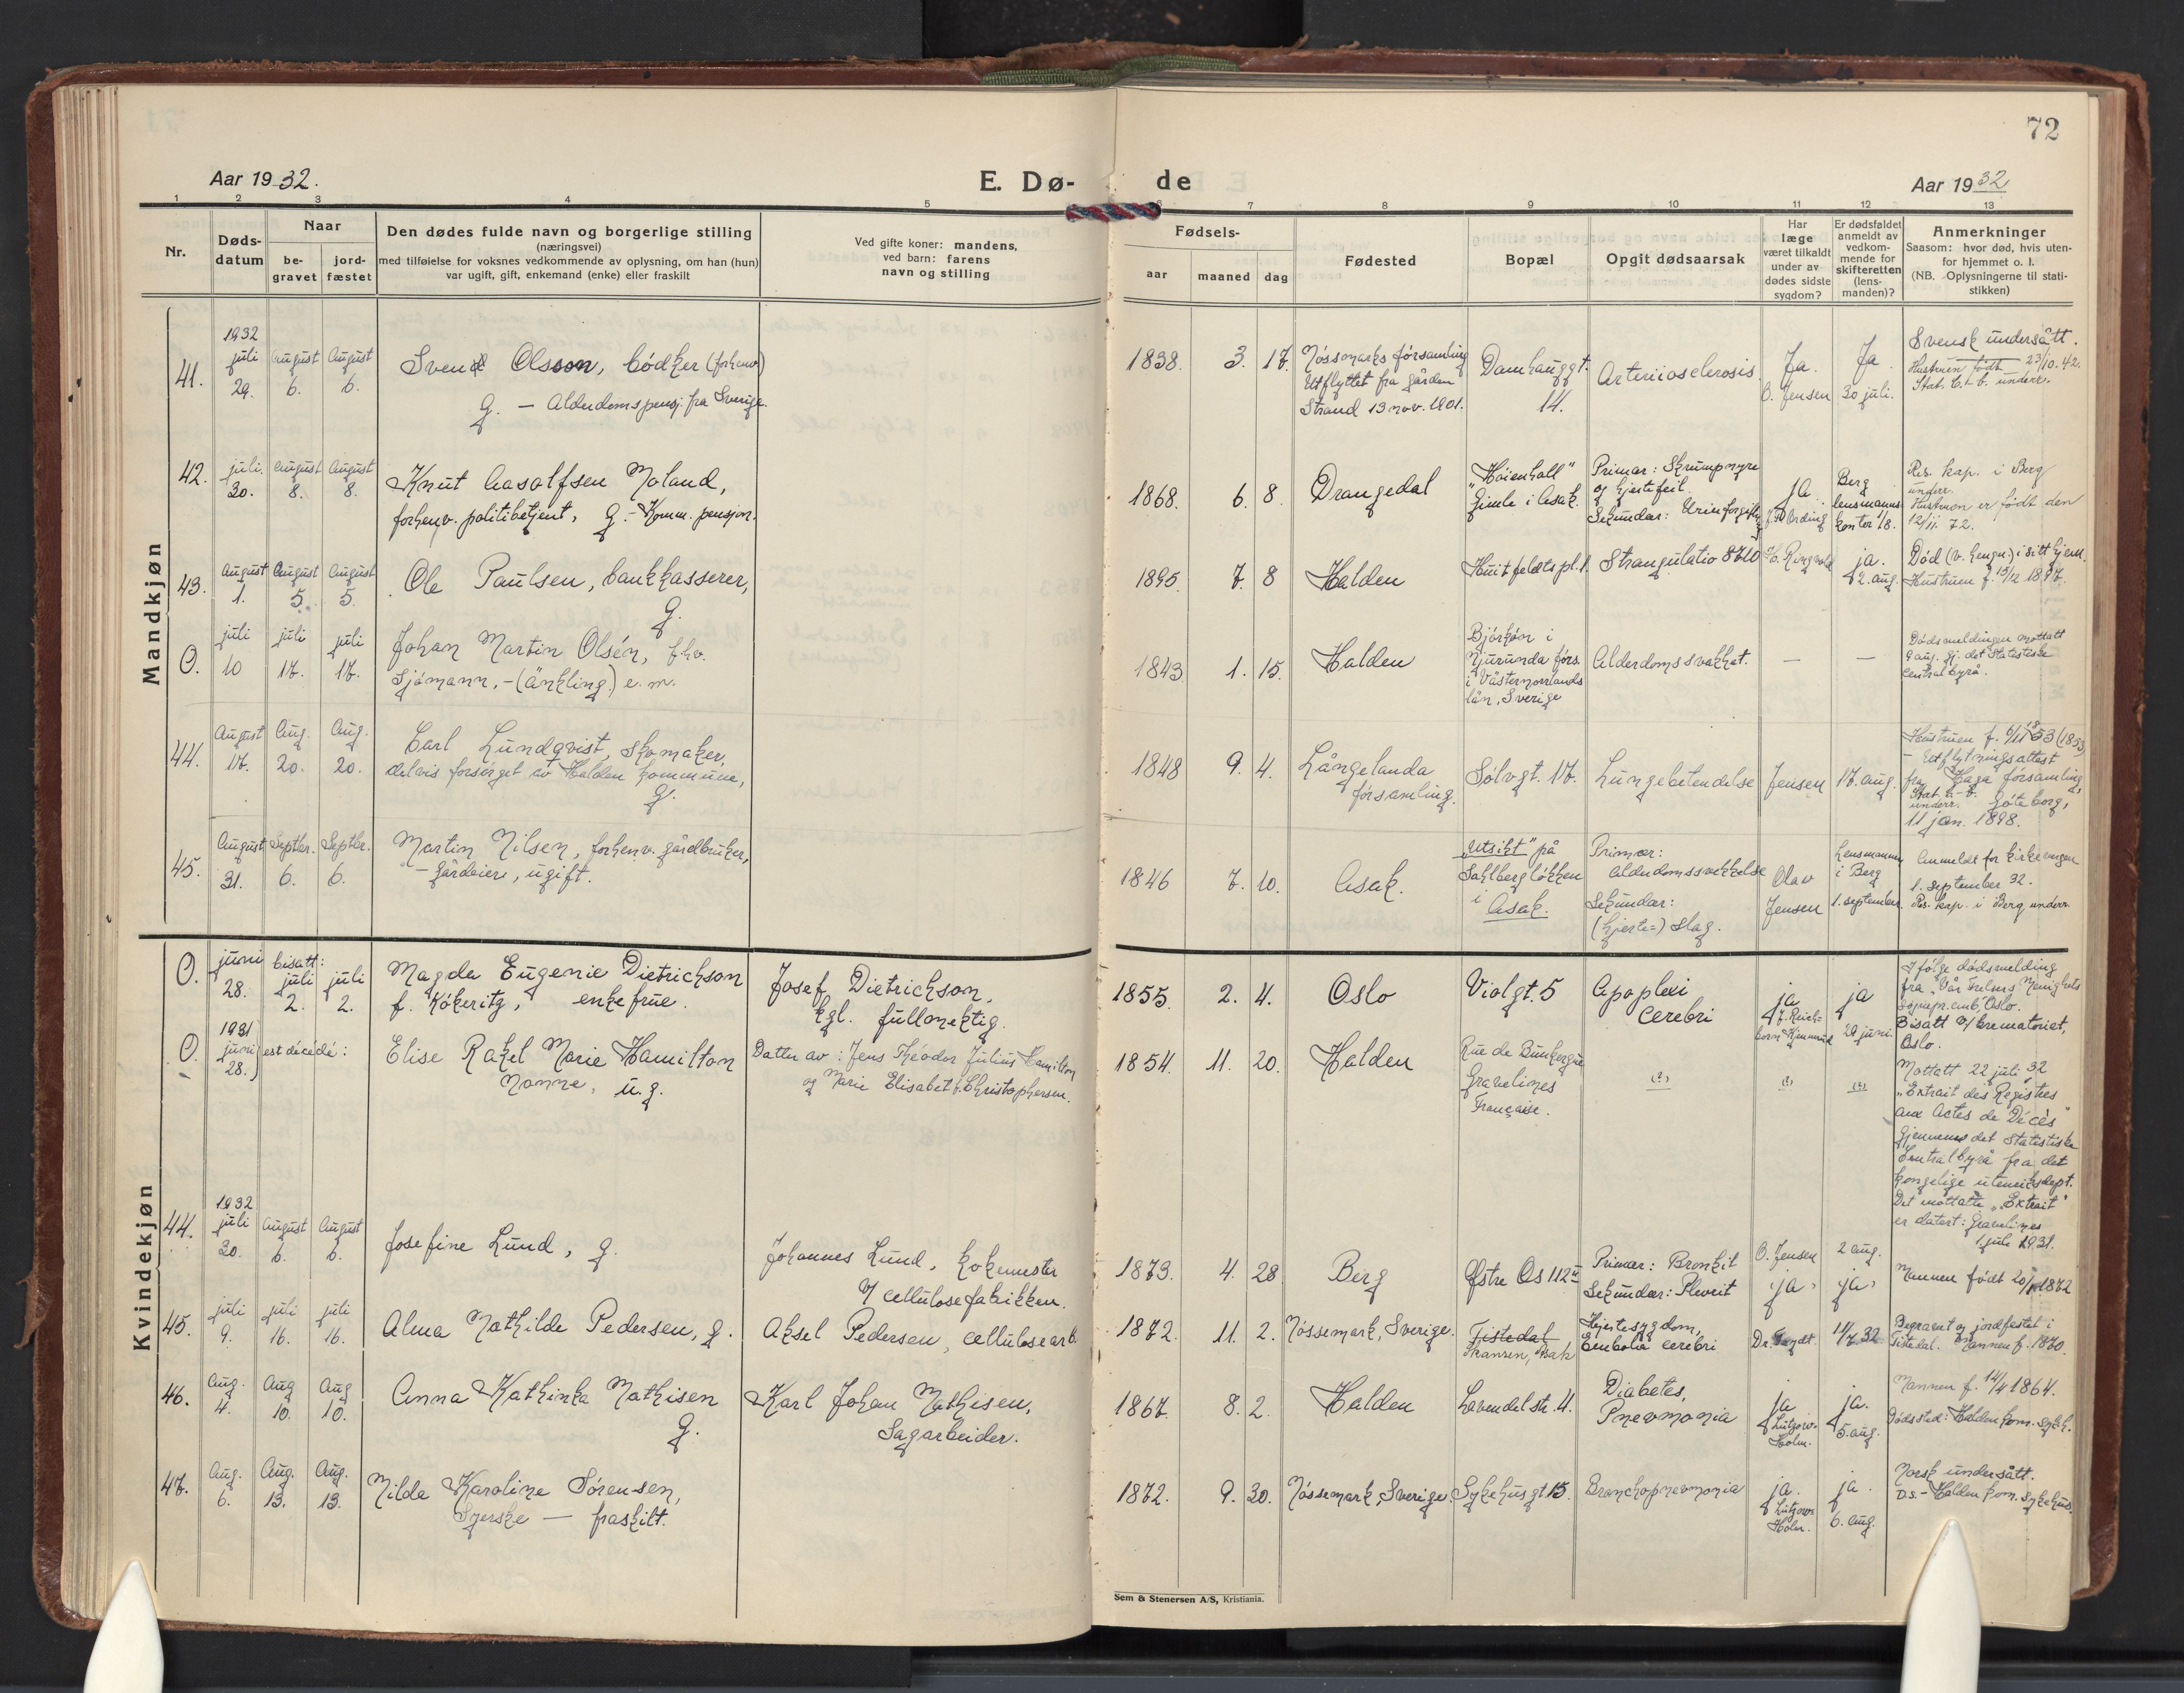 72
Aar 1932.
E. Dø-
de
Aar 1932
1 2 3 4 5 6 7 8 9 10 11 12 13
Nr.
Døds-
datum
Naar
be-
gravet
jord-
fæstet
Den dødes fulde navn og borgerlige stilling
(næringsvei)
med tilføielse for voksnes vedkommende av oplysning, om han (hun)
var ugift, gift, enkemand (enke) eller fraskilt
Ved gifte koner: mandens,
ved barn: farens
navn og stilling
Fødsels-
aar maaned dag
Fødested
Bopæl
Opgit dødsaarsak
Har
læge
været tilkaldt
under av
dødes sidste
sygdom?
Er dødsfaldet
anmeldt av
vedkom-
mende for
skifteretten
(lens-
manden)?
Anmerkninger
Saasom: hvor død, hvis uten-
for hjemmet o. l.
(NB. Oplysningerne til stati-
stikken)
Mandkjøn
41.
1932
juli
29.
August
6.
August
6.
Svend Olsson, bødker (forhenv.)
G. - Alderdomspensj. fra Sverige.
1838. 3. 17.
Nøssemarks församling
Utflyttet fra gården
Strand 13 nov. 1901.
Damhauggt.
14.
Arteriosclerosis
Ja.
O. Jensen
Ja.
30 juli.
Svensk undersått.
Hustruen født 23/10. 42.
Stat. C.-b. underr.
42.
juli.
30.
August
8.
August
8.
Knut Aasolfsen Moland,
forhenv. politibetjent, G. - Komm. pensjon.
1868. 6. 8.
Drangedal
"Høienhall"
Gimle i Asak.
Primær: Skrumpnyre
og hjertefeil.
Sekundær: Urinforgiftn.
ja.
Berg
lensmanns-
kontor 1/8.
Res. kap. i Berg
underr.
Hustruen er født den
12/11. 72.
43.
August
1.
August
5.
August
5.
Ole Paulsen, bankkasserer,
G.
1895. 7. 8
Halden
Huitfeldts pl. 1.
Strangulatio
ja.
2. aug.
Død (v. hengn.) i sitt hjem.
Hustruen f. 15/12 1897.
O.
juli
10
juli
17.
juli
17.
Johan Martin Olsén, fhv.
Sjømann, - (änkling) e. m.
1843. 1. 15.
Halden
Björkön i
Njurunda förs.
i Västernorrlands
län, Sverige
Alderdomssvakhet.
—
—
Dødsmeldingen mottatt
9 aug. gj. det Statistiske
Centralbyrå.
44.
August
17.
Aug.
20.
Aug.
20.
Carl Lundqvist, skomaker,
delvis forsørget av Halden kommune,
G.
1848 9. 4.
Långelanda
församling.
Sølvgt. 17.
Lungebetendelse
Jensen
17. aug.
Utflytningsattest
fra Haga församling,
Stat. C.-b.
underr. Göteborg,
11 jan. 1898.
45.
August
31.
Septbr.
6.
Septbr.
6.
Martin Nilsen, forhenv. gårdbruker,
- Gårdeier, ugift.
1846 7. 10.
Asak.
"Utsikt" på
Sahlbergløkken
i Asak.
Primær:
Alderdomssvekkelse
Sekundær:
(hjerte=) slag.
Olav
Jensen
Lensmannen
i Berg
1. september.
Anmeldt for kirkevergen
1. september 32.
Res. kap. i Berg underr.
Kvindekjøn
O.
juni
28.
bisatt:
juli
2.
juli
2.
Magda Eugenie Dietrichson
f. Kökeritz, enkefrue.
Josef Dietrichson,
kgl. fullmektig.
1855. 2. 4.
Oslo
Violgt. 5
Apoplexi
Cerebri
ja
ja
29 juni.
Ifølge dødsmelding
fra "Vår Frelsers Menighets
sognepr.emb." Oslo.
Bisatt v/ Crematoriet,
Oslo.
O.
1931
juni
28.
est décédé:
Elise Rakel Marie Hamilton
Nonne, u.g.
Datter av: Jens Théodor Julius Hamilton
og Marie Elisabet f. Christophersen.
1854. 11. 20.
Halden
Rue de Dunkerque
Gravelines
Française.
(?)
(?)
(?)
Mottatt 22 juli 32
"Extrait des Registres
aux Actes de Décès"
gjennem det Statistiske
Centralbyrå fra det
kongelige utenriksdept.
Det mottatte "Extrait"
er datert: Gravelines
1 juli 1931.
44.
1932
juli
30.
August
6.
August
6.
Josefine Lund, g.
Johannes Lund, kokemester
v/ cellulosefabrikken.
1873. 4. 28
Berg
Østre Os 112
Primær: Bronkit
Sekundær: Plevrit
O. Jensen
ja.
2 aug.
ja.
Mannen født 1872
45.
juli
9.
juli
16.
juli
16.
Alma Mathilde Pedersen, g.
Aksel Pedersen, cellulosearb.
1872. 11. 2.
Nøssemark, Sverige.
Tistedal
Skansen, Asak
Hjertesygdom,
Embolia cerebri
11/7 32
Begravet og jordfestet i
Tistedal. Mannen f. 1870.
46.
Aug.
4.
Aug
10.
Aug
10.
Anna Kathinka Mathisen
G.
Karl Johan Mathisen,
Sagarbeider.
1867. 8. 2.
Halden
Lavendelstr. 4.
Diabetes,
Pnevmonia
ja
Lützow-
Holm.
ja.
5. aug.
Mannen f. 14/4 1864.
Dødssted: Halden kom. sykeh.
47.
Aug.
6.
Aug.
13.
Aug.
13.
Milda Karoline Sørensen,
Syerske — fraskilt.
1872. 9. 30.
Nøssemark, Sverige.
Sykehusgt 15.
Bronchopnevmonia
ja.
Lützow-
Holm.
ja.
6. aug.
Norsk undersått.
D.S. - Halden kom. sykehus.
Sem & Stenersen A/S, Kristiania.